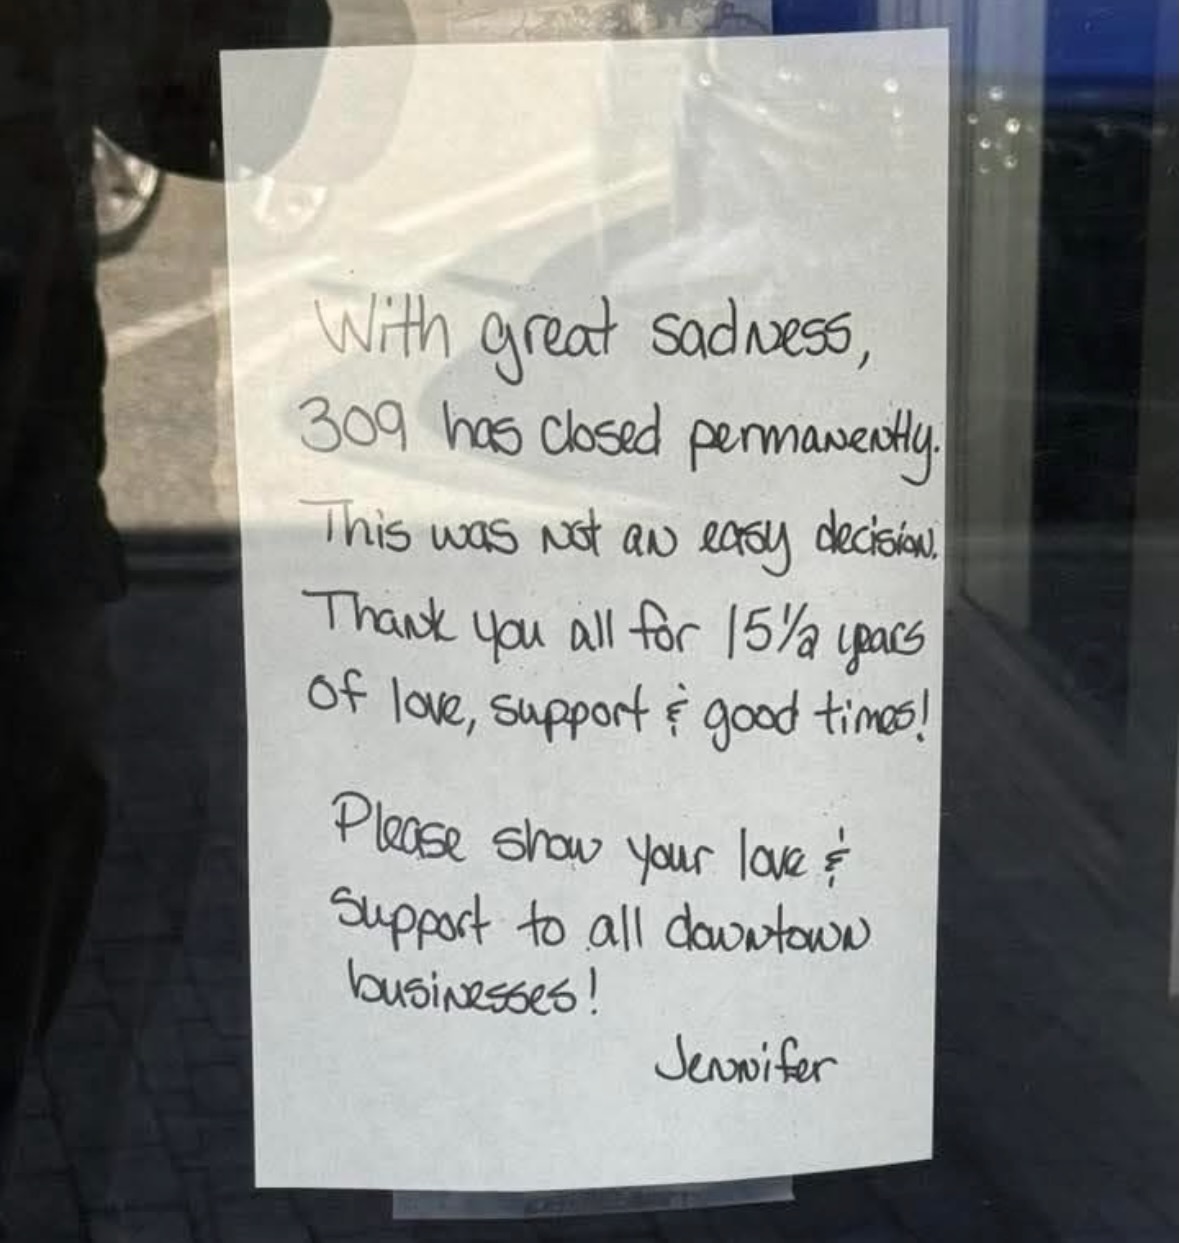 With great sadness,
309 has closed permanently.
This was not an easy decision.
Thank you all for 15 1/2 years
of love, support & good times!
Please show your love &
support to all downtown
businesses!
Jennifer